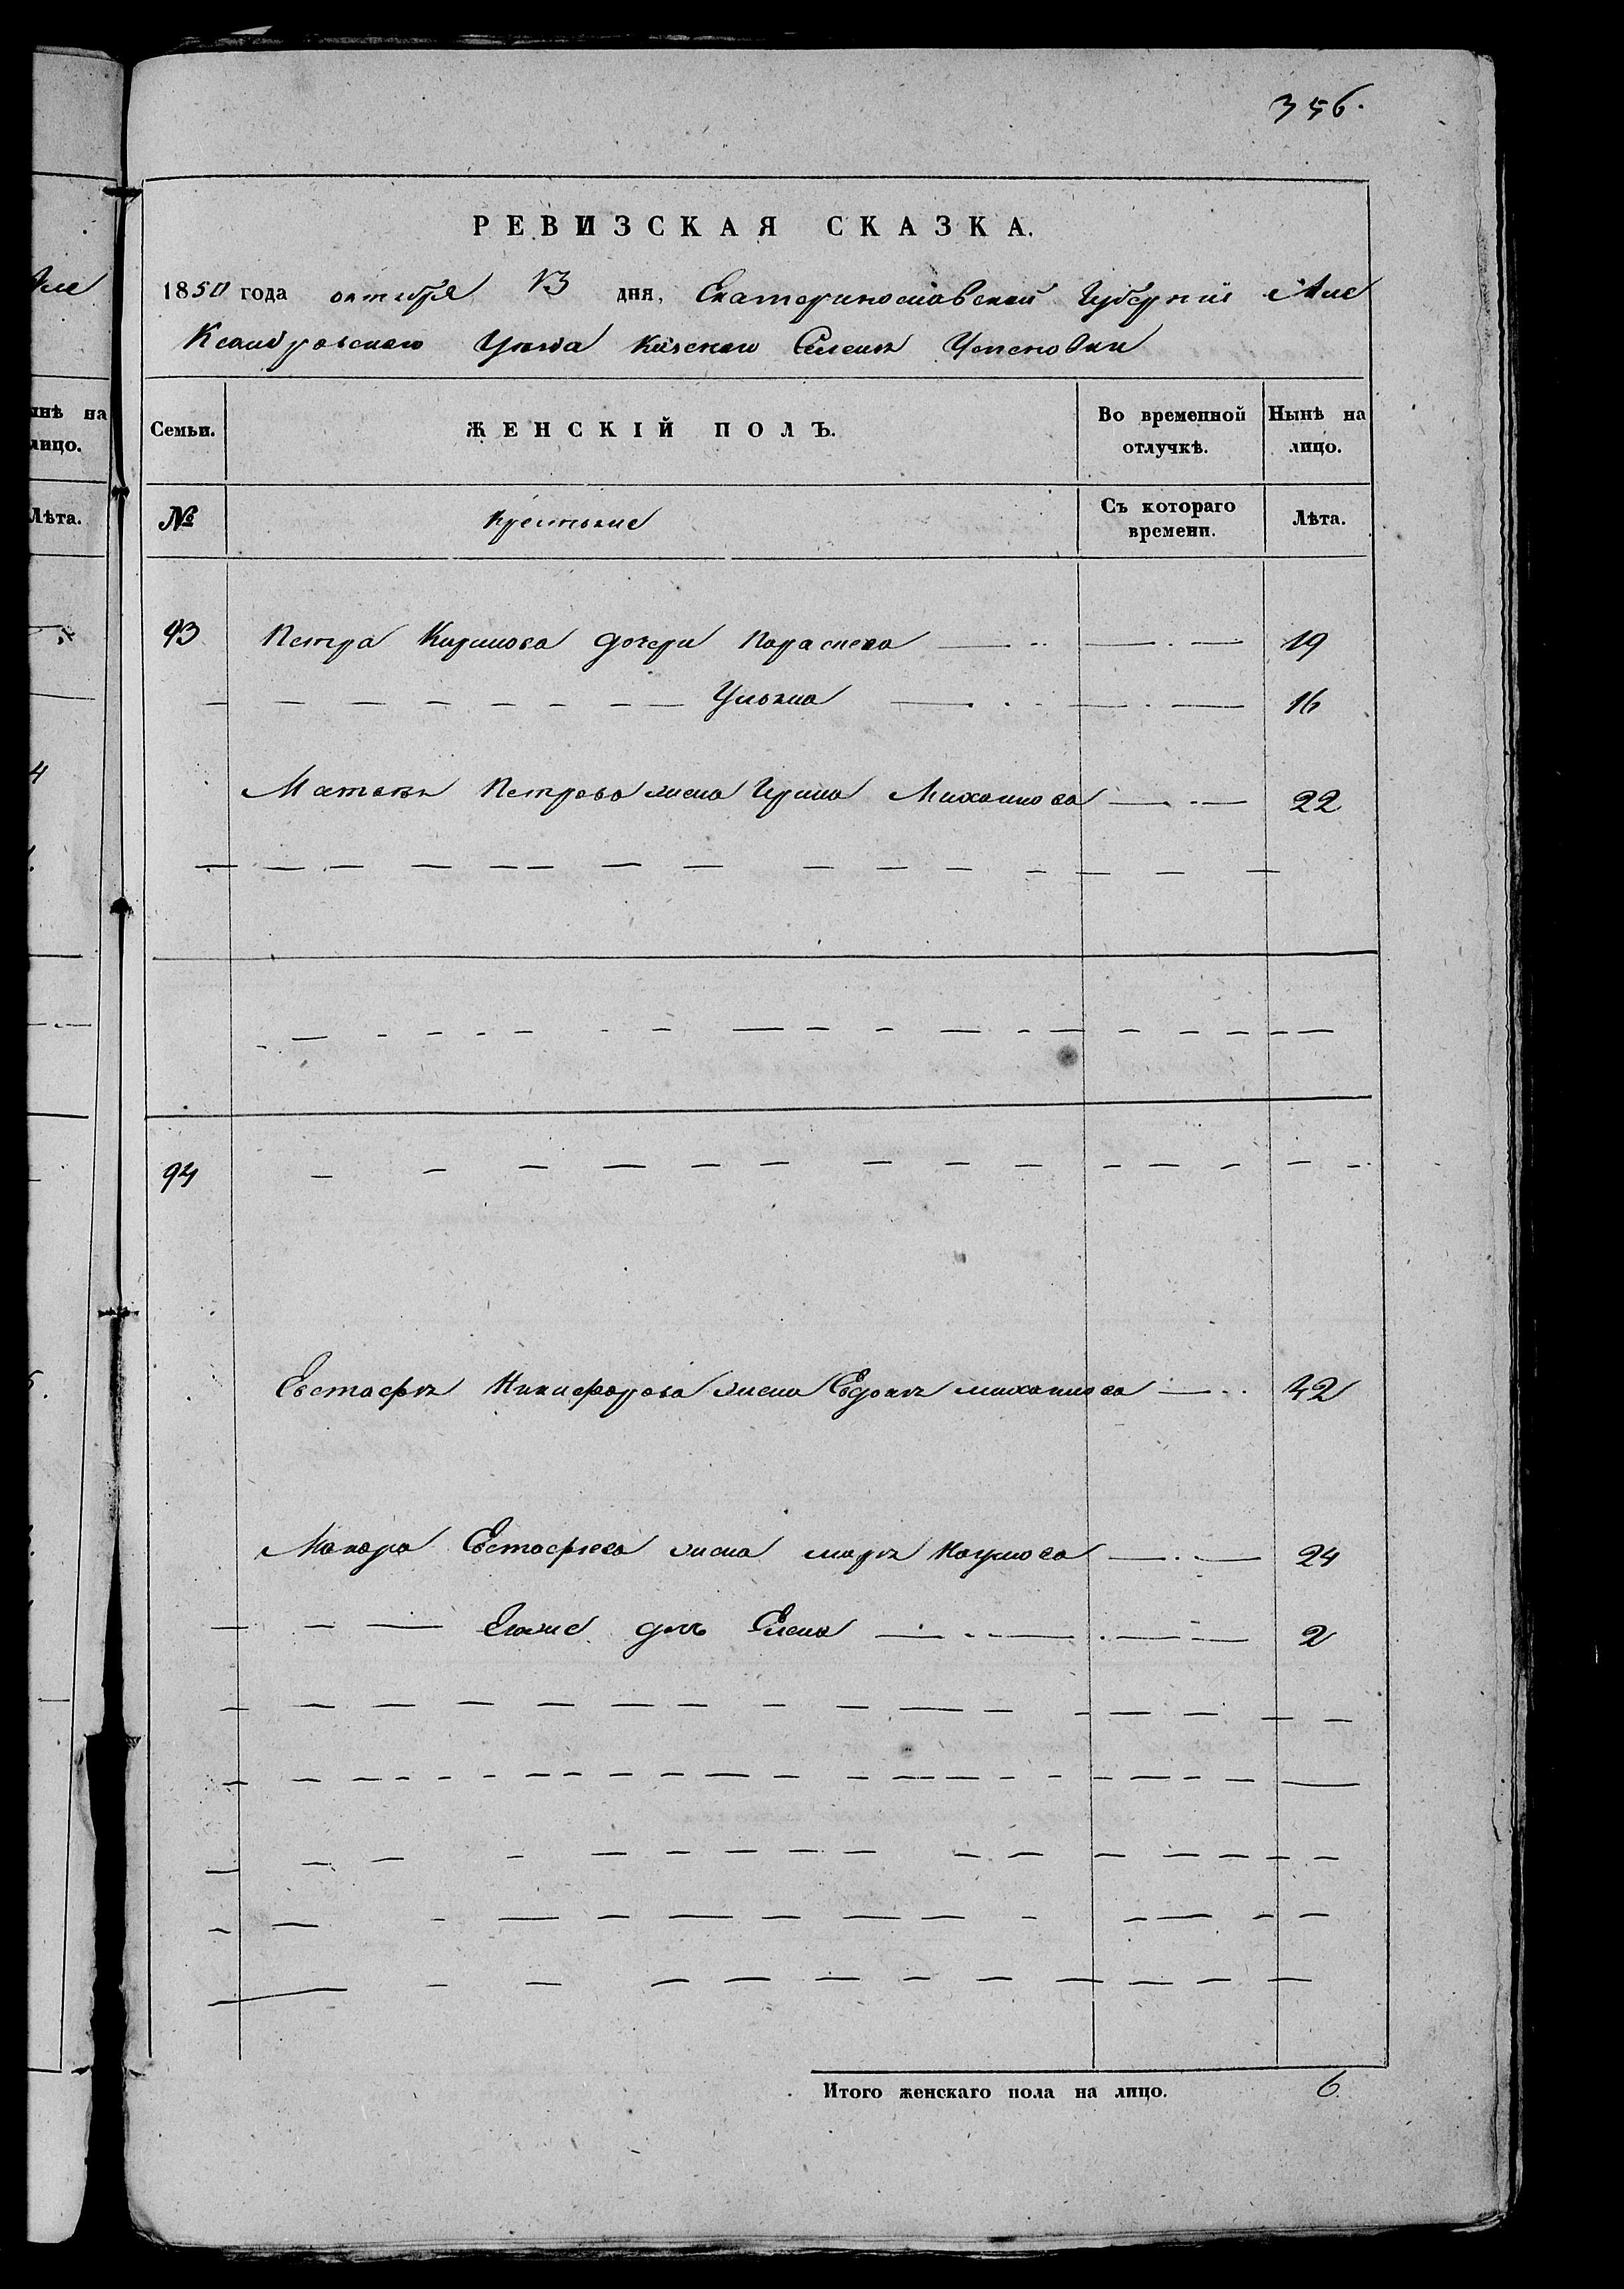 356.
РЕВИЗСКАЯ СКАЗКА.
1850 года октября 13 дня, Екатеринославской Губернии Але
Ксандровского Уезда Казенного Селения
Семьи. ЖЕНСКІЙ ПОЛЪ. Во временной отлучкѣ. Нынѣ на лицо.
№ крестьяне Съ котораго времени. Лѣта.
93 Петра Кирилова дочери Параскева 19
Ульяна 16
Матвея Петрова жена Ирина Михайлова 22
94
Евстафия Никифорова жена Евдокия михайлова 42
Макара Евстафиева жена марья Наумова 24
Егоже дочь Елена 2
Итого женскаго пола на лицо. 6
нынѣ на
лицо.
Лѣта.
4